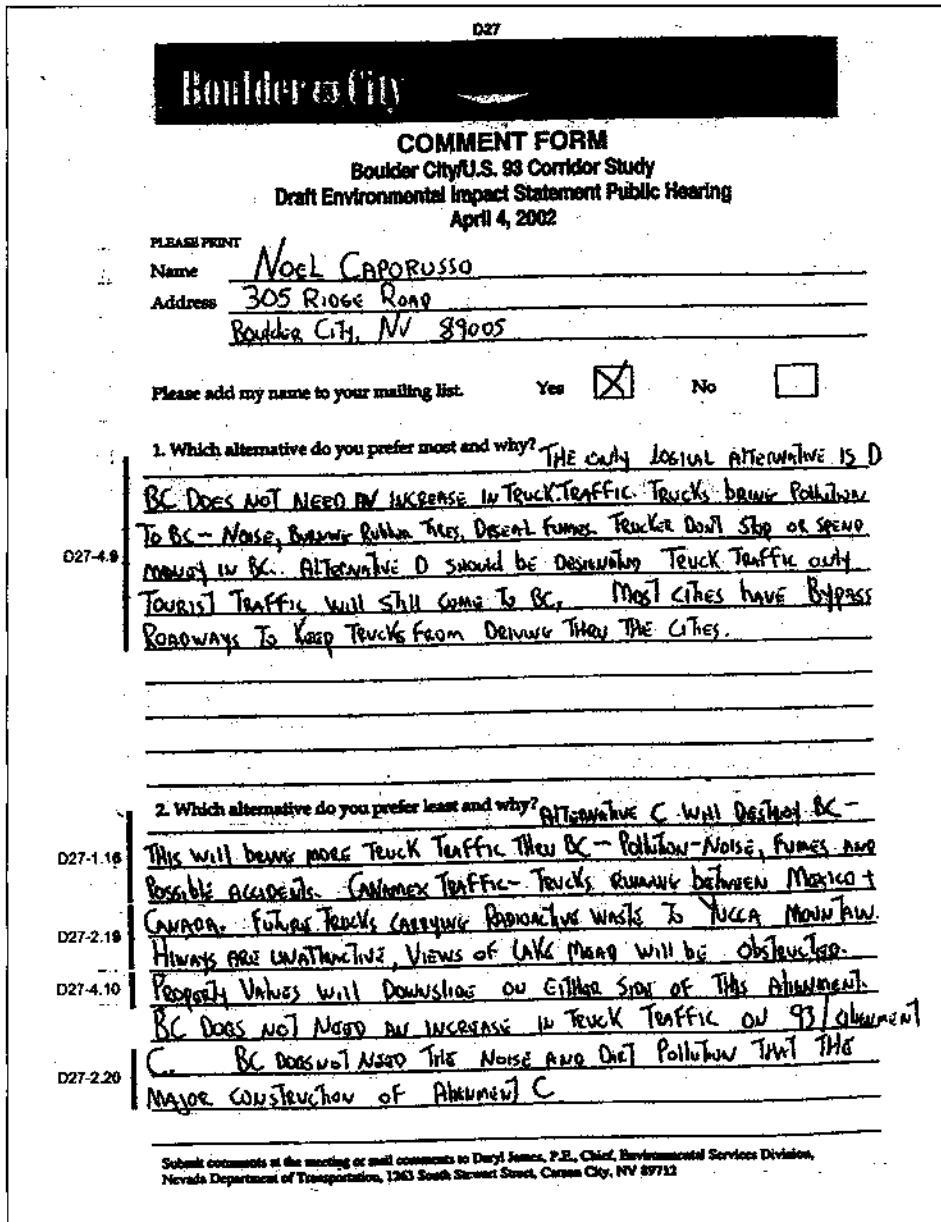 D27
Boulder City
COMMENT FORM
Boulder City/U.S. 93 Corridor Study
Draft Environmental Impact Statement Public Hearing
April 4, 2002
PLEASE PRINT
Name NOEL CAPORUSSO
Address 305 RIDGE ROAD
BOULDER CITY, NV 89005
Please add my name to your mailing list. Yes ☒ No ☐
1. Which alternative do you prefer most and why? THE ONLY LOGICAL ALTERNATIVE IS D
BC DOES NOT NEED AN INCREASE IN TRUCK TRAFFIC. TRUCKS BRING POLLUTION
TO BC - NOISE, BURNING RUBBER TIRES, DISEAL FUMES. TRUCKER DONT STOP OR SPEND
D27-4.9 MONEY IN BC. ALTERNATIVE D SHOULD BE DESIGNATED TRUCK TRAFFIC ONLY
TOURIST TRAFFIC WILL STILL COME TO BC, MOST CITIES HAVE BYPASS
ROADWAYS TO KEEP TRUCKS FROM DRIVING THRU THE CITIES.
2. Which alternative do you prefer least and why? ALTERNATIVE C WILL DESTROY BC -
D27-1.16 THIS WILL BRING MORE TRUCK TRAFFIC THRU BC - POLLUTION - NOISE, FUMES AND
POSSIBLE ACCIDENTS. CANAMEX TRAFFIC - TRUCKS RUNNING BETWEEN MEXICO +
CANADA. FUTURE TRUCKS CARRYING RADIOACTIVE WASTE TO YUCCA MOUNTAIN.
D27-2.19 HIWAYS ARE UNATTRACTIVE, VIEWS OF LAKE MEAD WILL BE OBSTRUCTED.
D27-4.10 PROPERTY VALUES WILL DOWNSLIDE ON EITHER SIDE OF THIS ALIGNMENT.
BC DOES NOT NEED AN INCREASE IN TRUCK TRAFFIC ON 93/ALIGNMENT
C. BC DOES NOT NEED THE NOISE AND DIRT POLLUTION THAT THE
D27-2.20 MAJOR CONSTRUCTION OF ALIGNMENT C
Submit comments at the meeting or mail comments to Daryl James, P.E., Chief, Environmental Services Division,
Nevada Department of Transportation, 1263 South Stewart Street, Carson City, NV 89712